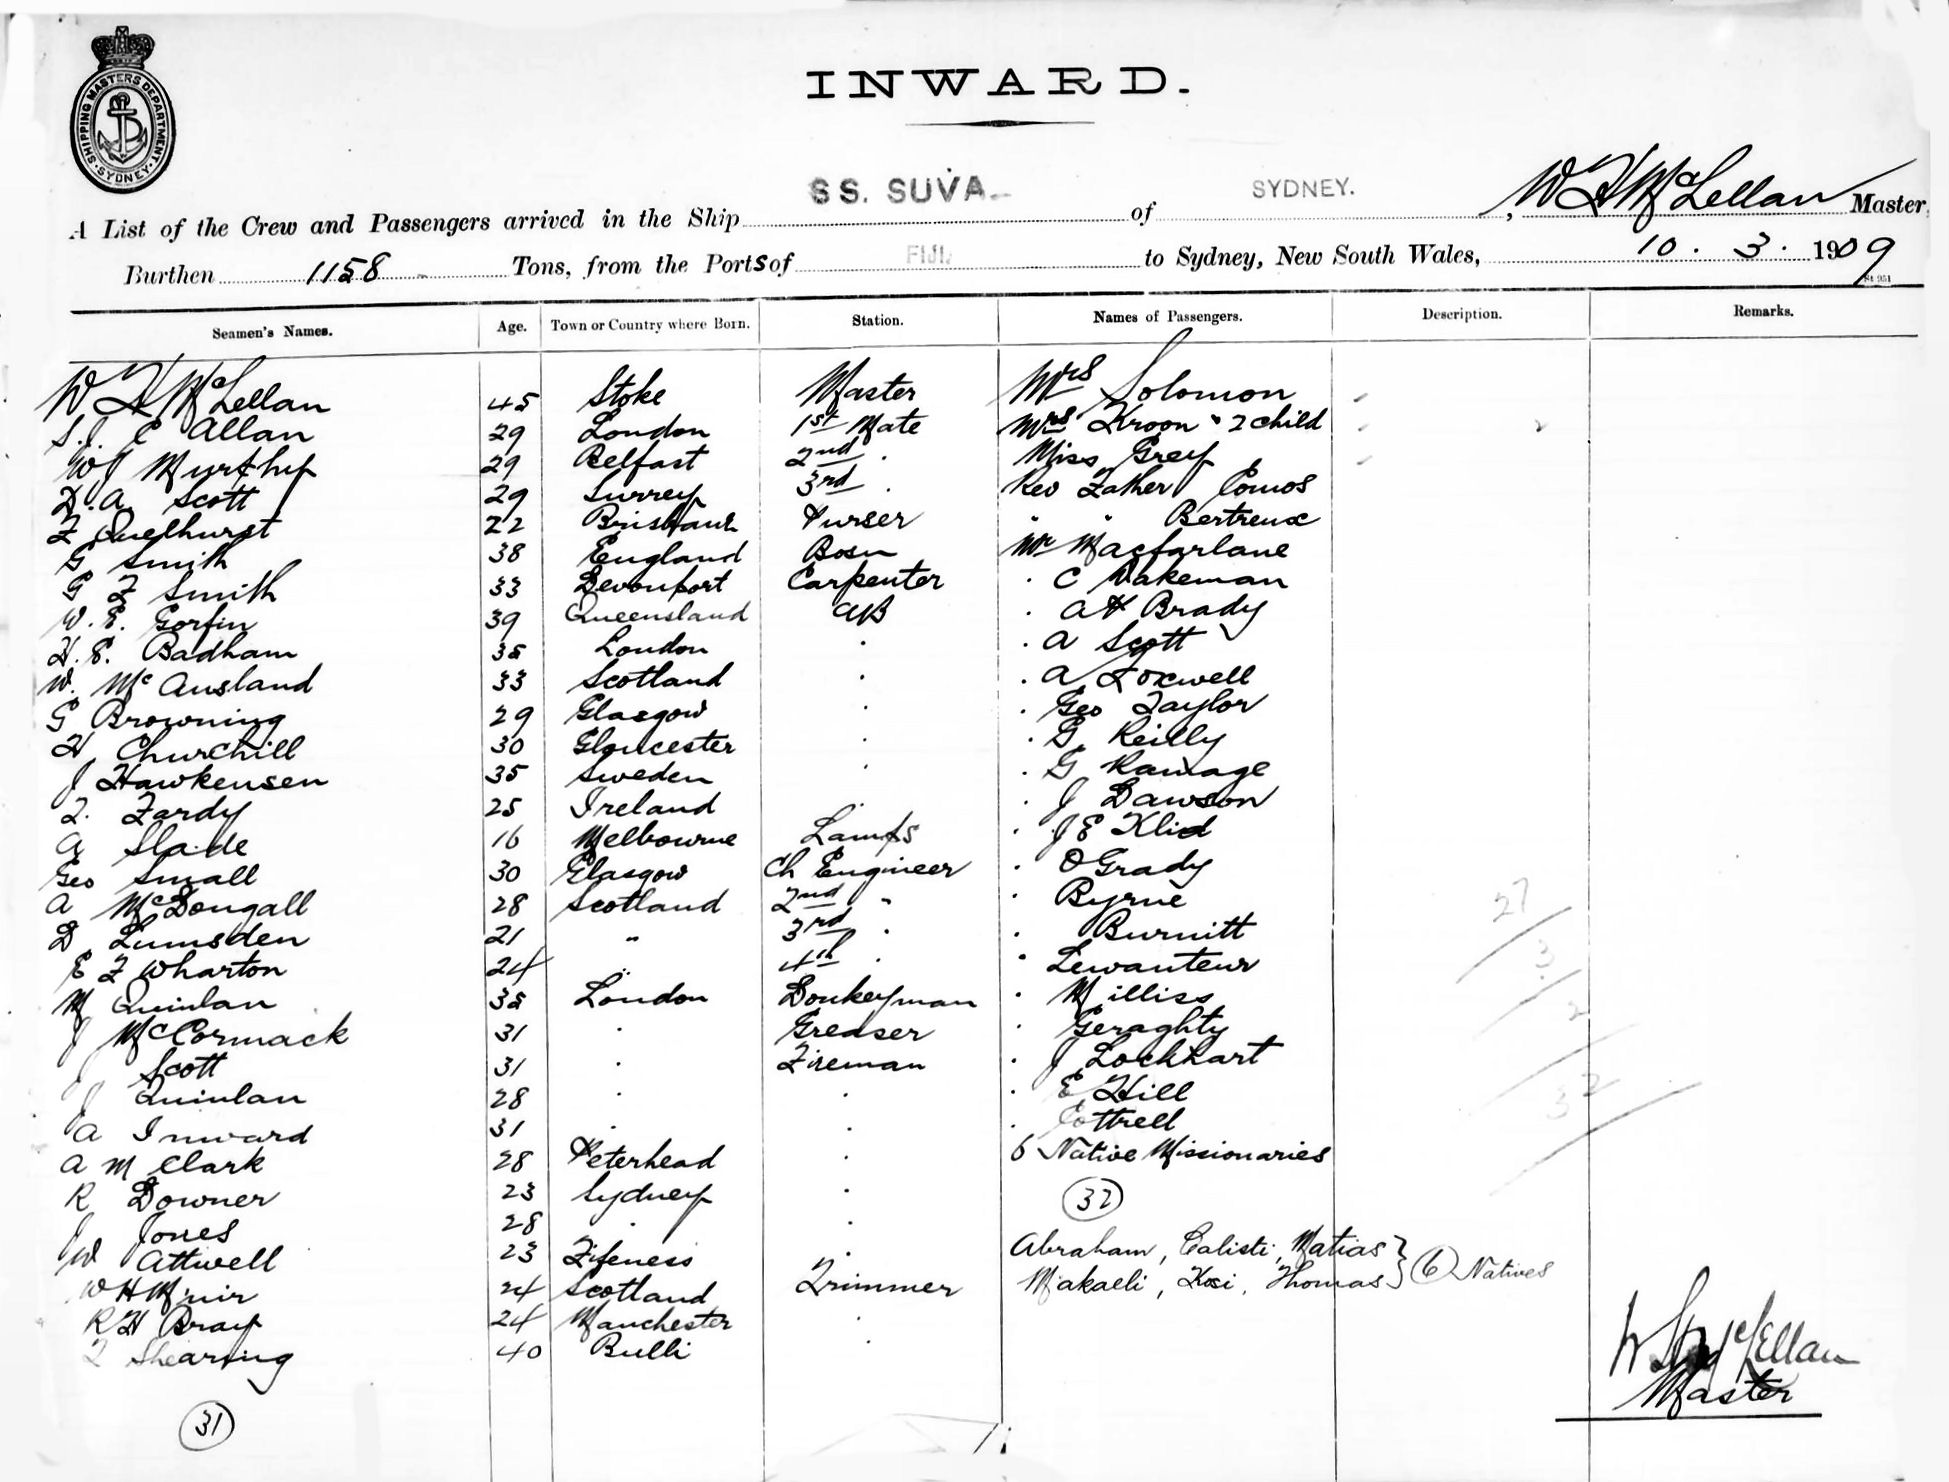 SHIPPING MASTERS DEPARTMENT
SYDNEY
INWARD.
A List of the Crew and Passengers arrived in the Ship SS. SUVA of SYDNEY. , W H McLellan Master,
Burthen 1158 Tons, from the Ports of FIJI. to Sydney, New South Wales, 10. 3. 1909
St 951
Seamen's Names. Age. Town or Country where Born. Station. Names of Passengers. Description. Remarks.
W H McLellan 45 Stoke Master Mrs Solomon
S.J. C Allan 29 London 1st Mate Mrs Kroon & 2 child
W J Murphy 29 Belfast 2nd " Miss Grey
D. A. Scott 29 Surrey 3rd " Rev Father Comos
F Quelhurst 22 Brisbane Purser " " Bertreux
G Smith 38 England Bosn Mr Macfarlane
G F Smith 33 Devonport Carpenter " C Wakeman
W. E. Gorfin 39 Queensland AB " A H Brady
H. E. Badham 35 London " " A Scott
W. McAusland 33 Scotland " " A Foxwell
G Browning 29 Glasgow " " Geo Taylor
H Churchill 30 Gloucester " " G Reilly
J Hawkensen 35 Sweden " " G Ramage
T. Fardy 25 Ireland " J Dawson
A Slade 16 Melbourne Lamps " J E Klid
Geo Small 30 Glasgow Ch Engineer " O Grady
A McDougall 28 Scotland 2nd " " Byrne
D Lumsden 21 " 3rd " " Burnitt
E F Wharton 24 " 4th " " Lewanteur
M Quinlan 35 London Donkeyman " Milliss
J McCormack 31 " Greaser " Geraghty
J Scott 31 " Fireman " J Lockhart
J Quinlan 28 " " " E Hill
A Inward 31 " " " Cottrell
A M Clark 28 Peterhead " 6 Native Missionaries
R Downer 23 Sydney " 32
J Jones 28 " "
W Attwell 23 Fifeness " Abraham, Calisti, Matias } 6 Natives
W H Muir 24 Scotland Trimmer Makaeli, Kosi, Thomas
R H Bray 24 Manchester "
T Shearing 40 Bulli "
31
27
3
2
32
W H McLellan
Master